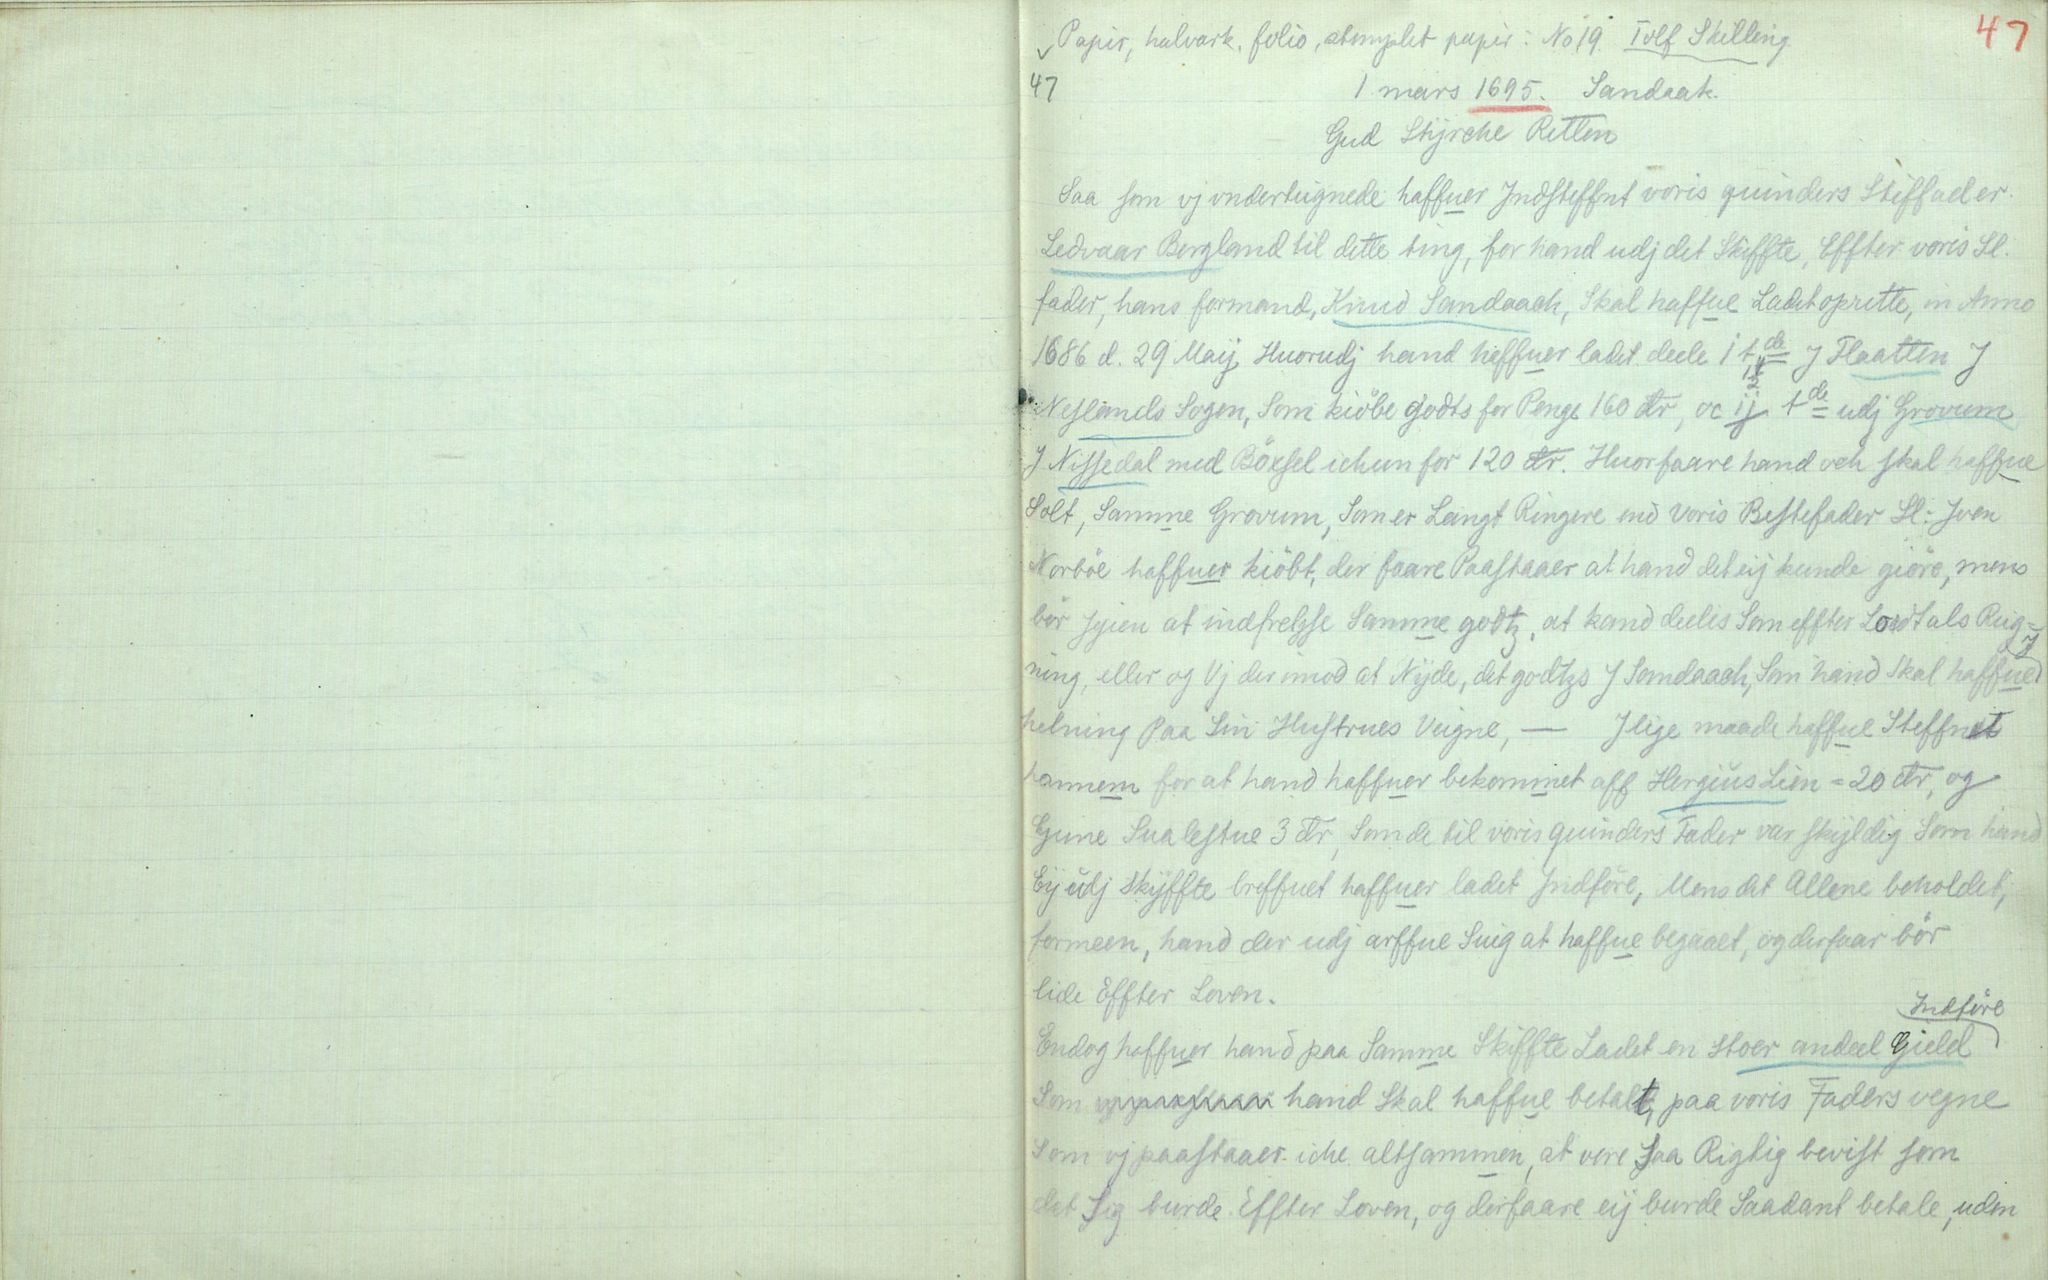 Papir, halvark, folio, stemplet papir: No 19. Tolf Skilling
47
47
1 mars 1695. Sandaak.
Gud Styrche Retten
Saa som vj vndertegnede haffuer Indsteffnt voris quinders Stiffader
Ledvaar Bergland til dette ting, for hand udj det Skiffte, Effter voris Sl.
fader, hans formand, Knud Sandaach, Skal haffue Ladet oprette, in Anno
1686 d. 29 Maij Huorudj hand haffuer ladet deele 1 tde J Flaatten J
1½
Neslands Sogen, Som kiöbe godts for Penge 160 dr, oc ij tde udj Grovum
J Nissedal med Böxsel ichun for 120 dr. Huorfaare hand och skal haffue
Solt, Samme Grovum, Som er Langt Ringere end Voris Bestefader Sl: Iven
Norböe haffuer kiöbt, der faare Paastaaer at hand det eij kunde giöre, mens
bör jgien at indfrelsse Samme godtz, at kand deelis Som effter Lordtals Reig=
ning, eller og Vj der imod at Nyde, det godtzs J Sandaach, Som hand Skal haffue J
helning Paa Sin Hustrues Veigne, — Jlige maade haffue Steffnet
hannem for at hand haffuer bekommet aff Hergius Lien = 20 dr, og
Gune Sualestue 3 dr, Som de til voris quinders Fader var skyldig Som hand
Eij udj Skyffte breffuet haffuer ladet Jndföre, Mens det Allene beholdet,
formeen, hand der udj arffue Suig at haffue begaaet, og derfaar bör
lide Effter Loven.
Indföre
Endog haffuer hand paa Samme Skiffte Ladet en stoer andeel Gield
Som hand Skal haffue betalt, paa voris Faders vegne
Som vj paastaaer iche altsammen, at vere Saa Rigtig bevist som
det Sig burde Effter Loven, og derfaare eij burde Saadant betale, uden